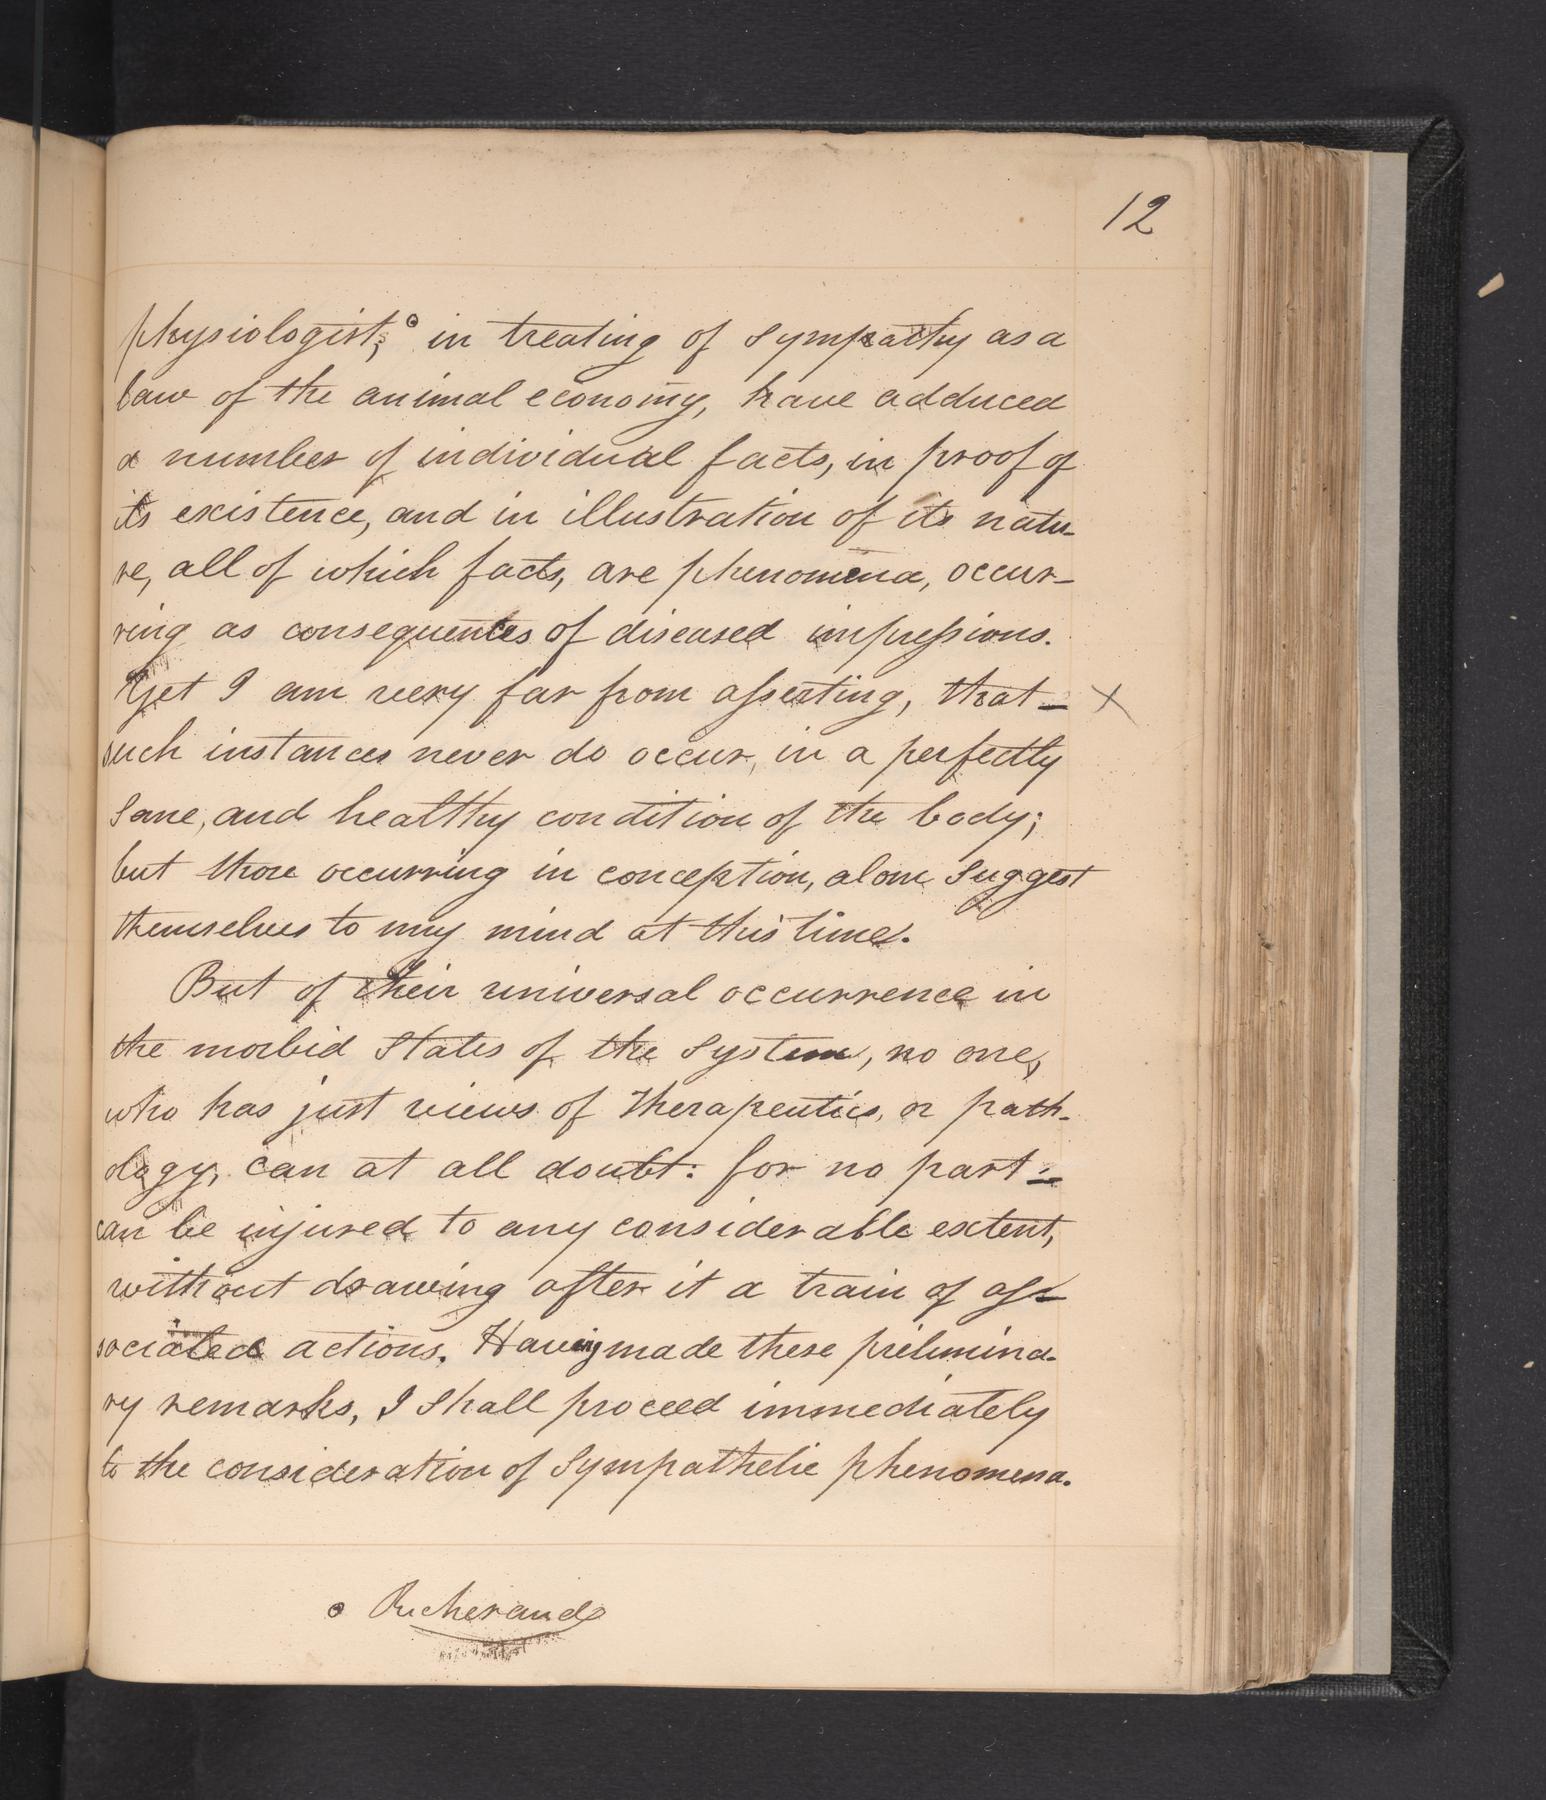 12
physiologist,° in treating of sympathy as a
law of the animal economy, have adduced
a number of individual facts, in proof of
its existence, and in illustration of its natu-
re, all of which facts, are phenomena, occur-
ring as consequences of diseased impressions.
Yet I am very far from asserting, that - ×
such instances never do occur, in a perfectly
sane, and healthy condition of the body;
but those occurring in conception, alone suggest
themselves to my mind at this time.
But of their universal occurrence in
the morbid States of the System, no one,
who has just views of Therapeutics, or path-
ology, can at all doubt: for no part -
can be injured to any considerable extent,
without drawing after it a train of as-
sociated actions. Having made these prelimina-
ry remarks, I shall proceed immediately
to the consideration of Sympathetic phenomena.
° Richerand